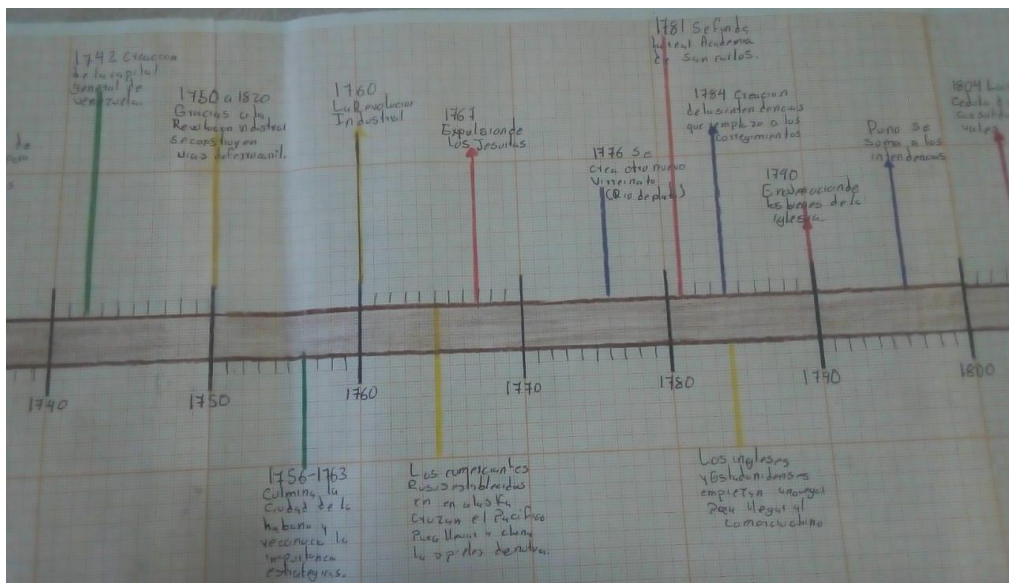 de
1742 Creacion
de la capital
General de
Venezuela.
1750 a 1820
Gracias a la
Revolucion industrial
se construyen
vias
1760
La Revolucion
Industrial
1767
Expulsion de
Los Jesuitas
1776 Se
crea otro nuevo
Virreinato
(Rio de plata)
1781 Se funda
la real Academia
de San carlos.
1784 Creacion
de las intendencias
que remplaza a los
corregimientos
1790
Enajenacion de
los bienes de la
iglesia.
Puno se
Suma a los
intendencias
1804 La
Cedula
vales
1740
1750
1760
1770
1780
1790
1800
1756-1763
Culmina la
Ciudad de la
habana y
la
importancia
Los comerciantes
Rusos establecidos
en alaska
Cruzan el Pacifico
Para llevar a china
Los ingleses
y Estadunidenses
empiezan a navegar
Para llegar al